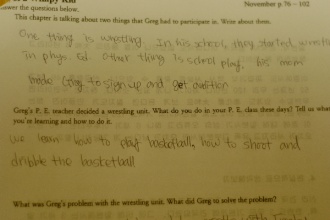 Wimpy Kid
November p.76 - 102
answer the questions below.
This chapter is talking about two things that Greg had to participate in. Write about them.
One thing is wrestling. In his school, they started wrestling
in phys. Ed. Other thing is school play. his mom
made Greg to sign up and get audition
Greg's P. E. teacher decided a wrestling unit. What do you do in your P. E. class these days? Tell us what
you're learning and how to do it.
we learn how to play basketball, how to shoot and
dribble the basketball
What was Greg's problem with the wrestling unit. What did Greg so solve the problem?